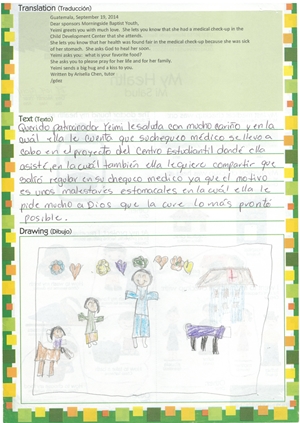 Translation (Traducción)
Guatemala, September 19, 2014
Dear sponsors Morningside Baptist Youth,
Yeimi greets you with much love. She lets you know that she had a medical check-up in the
Child Development Center that she attends.
She lets you know that her health was found her in the medical check-up because she was sick
of her stomach. She asks God to heal her soon.
Yeimi asks you: what is your favorite food?
She asks you to please pray for her life and for her family.
Yeimi sends a big hug and a kiss to you.
Written by Arisella Chen, tutor
/gdas
Text (Texto)
Querido patrocinador Yeimi le saluda con mucho cariño y en la
cuál ella le cuenta que su chequeo médico se llevo a
cabo en el proyecto del Centro Estudiantil donde ella
asiste, en la cuál también ella le quiere compartir que
salió regular en su chequeo medico ya que el motivo
es unos malestares estomacales en la cuál ella le
pide mucho a Dios que la cure lo más pronto
posible.
Drawing (Dibujo)